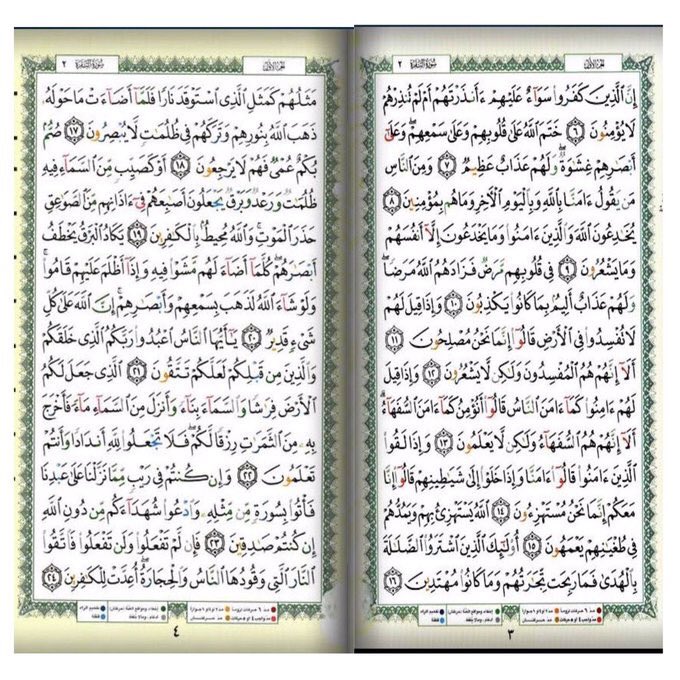 سورة البقرة ٢
الجزء الأول
إِنَّ ٱلَّذِينَ كَفَرُوا۟ سَوَآءٌ عَلَيْهِمْ ءَأَنذَرْتَهُمْ أَمْ لَمْ تُنذِرْهُمْ
لَا يُؤْمِنُونَ ٦ خَتَمَ ٱللَّهُ عَلَىٰ قُلُوبِهِمْ وَعَلَىٰ سَمْعِهِمْ ۖ وَعَلَىٰٓ
أَبْصَٰرِهِمْ غِشَٰوَةٌ ۖ وَلَهُمْ عَذَابٌ عَظِيمٌ ٧ وَمِنَ ٱلنَّاسِ
مَن يَقُولُ ءَامَنَّا بِٱللَّهِ وَبِٱلْيَوْمِ ٱلْءَاخِرِ وَمَا هُم بِمُؤْمِنِينَ ٨
يُخَٰدِعُونَ ٱللَّهَ وَٱلَّذِينَ ءَامَنُوا۟ وَمَا يَخْدَعُونَ إِلَّآ أَنفُسَهُمْ
وَمَا يَشْعُرُونَ ٩ فِى قُلُوبِهِم مَّرَضٌ فَزَادَهُمُ ٱللَّهُ مَرَضًا ۖ
وَلَهُمْ عَذَابٌ أَلِيمٌۢ بِمَا كَانُوا۟ يَكْذِبُونَ ١٠ وَإِذَا قِيلَ لَهُمْ
لَا تُفْسِدُوا۟ فِى ٱلْأَرْضِ قَالُوٓا۟ إِنَّمَا نَحْنُ مُصْلِحُونَ ١١
أَلَآ إِنَّهُمْ هُمُ ٱلْمُفْسِدُونَ وَلَٰكِن لَّا يَشْعُرُونَ ١٢ وَإِذَا قِيلَ
لَهُمْ ءَامِنُوا۟ كَمَآ ءَامَنَ ٱلنَّاسُ قَالُوٓا۟ أَنُؤْمِنُ كَمَآ ءَامَنَ ٱلسُّفَهَآءُ ۗ
أَلَآ إِنَّهُمْ هُمُ ٱلسُّفَهَآءُ وَلَٰكِن لَّا يَعْلَمُونَ ١٣ وَإِذَا لَقُوا۟
ٱلَّذِينَ ءَامَنُوا۟ قَالُوٓا۟ ءَامَنَّا وَإِذَا خَلَوْا۟ إِلَىٰ شَيَٰطِينِهِمْ قَالُوٓا۟ إِنَّا
مَعَكُمْ إِنَّمَا نَحْنُ مُسْتَهْزِءُونَ ١٤ ٱللَّهُ يَسْتَهْزِئُ بِهِمْ وَيَمُدُّهُمْ
فِى طُغْيَٰنِهِمْ يَعْمَهُونَ ١٥ أُو۟لَٰٓئِكَ ٱلَّذِينَ ٱشْتَرَوُا۟ ٱلضَّلَٰلَةَ
بِٱلْهُدَىٰ فَمَا رَبِحَت تِّجَٰرَتُهُمْ وَمَا كَانُوا۟ مُهْتَدِينَ ١٦
٣
سورة البقرة ٢
الجزء الأول
مَثَلُهُمْ كَمَثَلِ ٱلَّذِى ٱسْتَوْقَدَ نَارًا فَلَمَّآ أَضَآءَتْ مَا حَوْلَهُۥ
ذَهَبَ ٱللَّهُ بِنُورِهِمْ وَتَرَكَهُمْ فِى ظُلُمَٰتٍ لَّا يُبْصِرُونَ ١٧ صُمٌّۢ
بُكْمٌ عُمْىٌ فَهُمْ لَا يَرْجِعُونَ ١٨ أَوْ كَصَيِّبٍ مِّنَ ٱلسَّمَآءِ فِيهِ
ظُلُمَٰتٌ وَرَعْدٌ وَبَرْقٌ يَجْعَلُونَ أَصَٰبِعَهُمْ فِىٓ ءَاذَانِهِم مِّنَ ٱلصَّوَٰعِقِ
حَذَرَ ٱلْمَوْتِ ۚ وَٱللَّهُ مُحِيطٌۢ بِٱلْكَٰفِرِينَ ١٩ يَكَادُ ٱلْبَرْقُ يَخْطَفُ
أَبْصَٰرَهُمْ ۖ كُلَّمَآ أَضَآءَ لَهُم مَّشَوْا۟ فِيهِ وَإِذَآ أَظْلَمَ عَلَيْهِمْ قَامُوا۟ ۚ
وَلَوْ شَآءَ ٱللَّهُ لَذَهَبَ بِسَمْعِهِمْ وَأَبْصَٰرِهِمْ ۚ إِنَّ ٱللَّهَ عَلَىٰ كُلِّ
شَىْءٍ قَدِيرٌ ٢٠ يَٰٓأَيُّهَا ٱلنَّاسُ ٱعْبُدُوا۟ رَبَّكُمُ ٱلَّذِى خَلَقَكُمْ
وَٱلَّذِينَ مِن قَبْلِكُمْ لَعَلَّكُمْ تَتَّقُونَ ٢١ ٱلَّذِى جَعَلَ لَكُمُ
ٱلْأَرْضَ فِرَٰشًا وَٱلسَّمَآءَ بِنَآءً وَأَنزَلَ مِنَ ٱلسَّمَآءِ مَآءً فَأَخْرَجَ
بِهِۦ مِنَ ٱلثَّمَرَٰتِ رِزْقًا لَّكُمْ ۖ فَلَا تَجْعَلُوا۟ لِلَّهِ أَندَادًا وَأَنتُمْ
تَعْلَمُونَ ٢٢ وَإِن كُنتُمْ فِى رَيْبٍ مِّمَّا نَزَّلْنَا عَلَىٰ عَبْدِنَا
فَأْتُوا۟ بِسُورَةٍ مِّن مِّثْلِهِۦ وَٱدْعُوا۟ شُهَدَآءَكُم مِّن دُونِ ٱللَّهِ
إِن كُنتُمْ صَٰدِقِينَ ٢٣ فَإِن لَّمْ تَفْعَلُوا۟ وَلَن تَفْعَلُوا۟ فَٱتَّقُوا۟
ٱلنَّارَ ٱلَّتِى وَقُودُهَا ٱلنَّاسُ وَٱلْحِجَارَةُ ۖ أُعِدَّتْ لِلْكَٰفِرِينَ ٢٤
٤